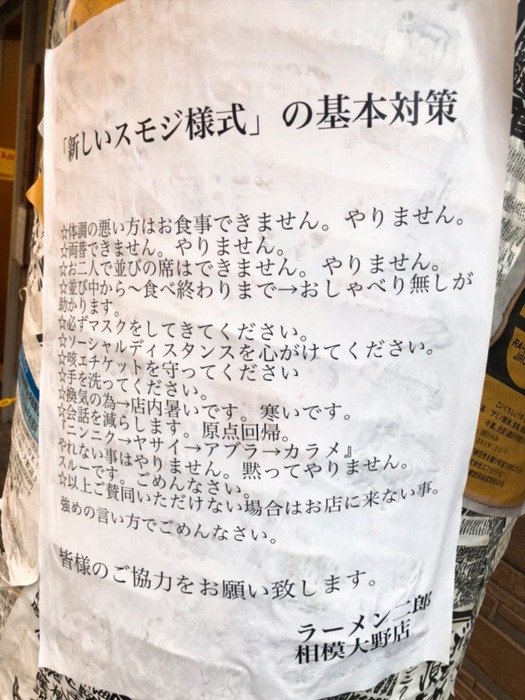 「新しいスモジ様式」の基本対策
☆体調の悪い方はお食事できません。やりません。
☆両替できません。やりません。
☆お二人で並びの席はできません。やりません。
☆並び中から～食べ終わりまで→おしゃべり無しが
助かります。
☆必ずマスクをしてきてください。
☆ソーシャルディスタンスを心がけてください。
☆咳エチケットを守ってください
☆手を洗ってください。
☆換気の為→店内暑いです。寒いです。
☆会話を減らします。原点回帰。
『ニンニク→ヤサイ→アブラ→カラメ』
やれない事はやりません。黙ってやりません。
スルーです。ごめんなさい。
☆以上ご賛同いただけない場合はお店に来ない事。
強めの言い方でごめんなさい。
皆様のご協力をお願い致します。
ラーメン二郎
相模大野店